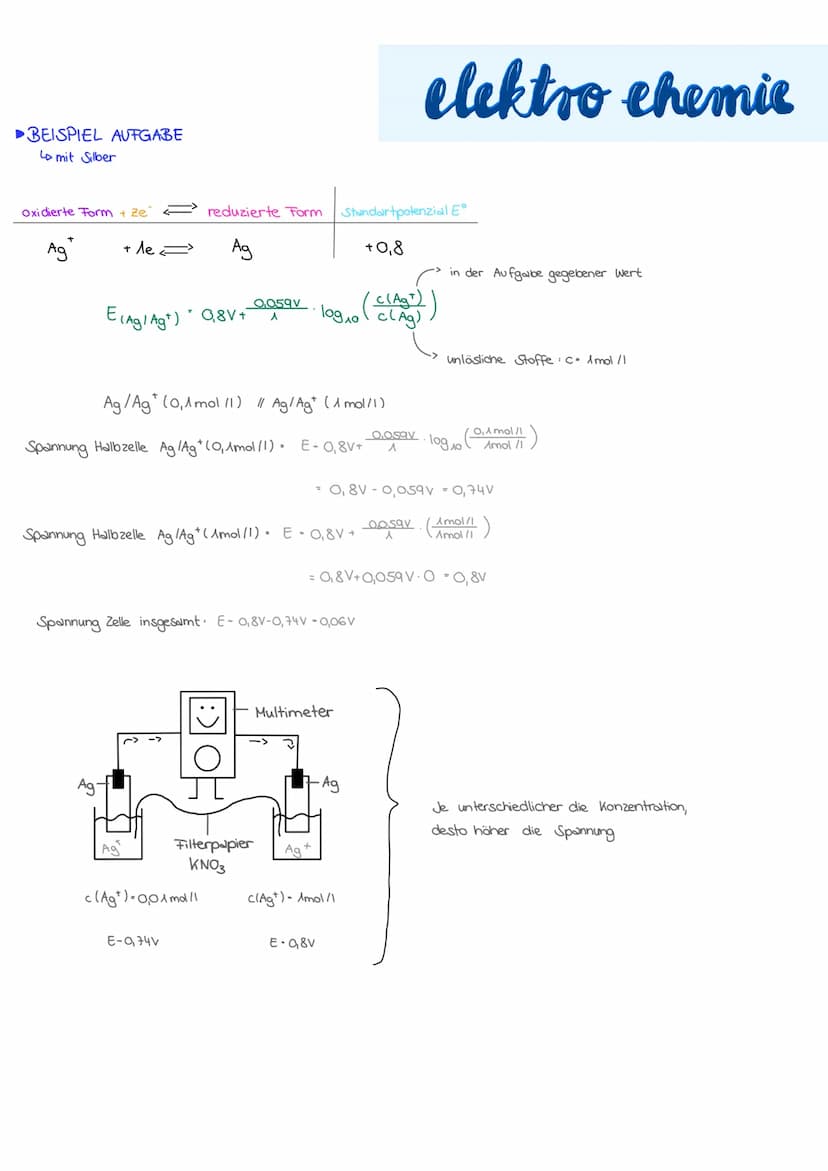 elektro chemie
BEISPIEL AUFGABE
↳ mit Silber
oxidierte Form + ze⁻ ⇌ reduzierte Form | Standartpotenzial E°
Ag⁺ + 1e ⇌ Ag +0,8
→ in der Aufgabe gegebener Wert
E(Ag/Ag⁺) = 0,8V + 0,059V/1 · log₁₀ (c(Ag⁺)/c(Ag))
→ unlösliche Stoffe: c = 1mol/l
Ag/Ag⁺ (0,1mol/l) // Ag/Ag⁺ (1mol/l)
Spannung Halbzelle Ag/Ag⁺(0,1mol/l) = E = 0,8V + 0,059V/1 · log₁₀ (0,1mol/l / 1mol/l)
= 0,8V - 0,059V = 0,74V
Spannung Halbzelle Ag/Ag⁺(1mol/l) = E = 0,8V + 0,059V/1 · (1mol/l / 1mol/l)
= 0,8V+0,059V·0 = 0,8V
Spannung Zelle insgesamt: E = 0,8V-0,74V = 0,06V
Multimeter
Ag
Ag
Ag⁺
Filterpapier
KNO₃
Ag⁺
c(Ag⁺) = 0,01mol/l
c(Ag⁺) = 1mol/l
E = 0,74V
E = 0,8V
Je unterschiedlicher die Konzentration,
desto höher die Spannung